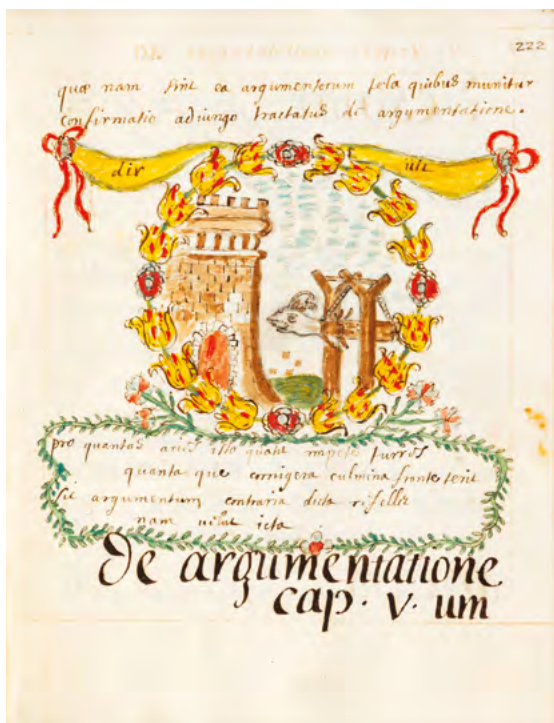 222
quæ nam sint ea argumentorum tela quibus munitur
confirmatio adiungo tractatus de argumentatione.
dir uit
pro quantas aries isto quatit impete turres
quanta que cornigera culmina fronte terit
sic argumentum contraria dicta refellit
nam uelut icta
De argumentatione
cap. V. um